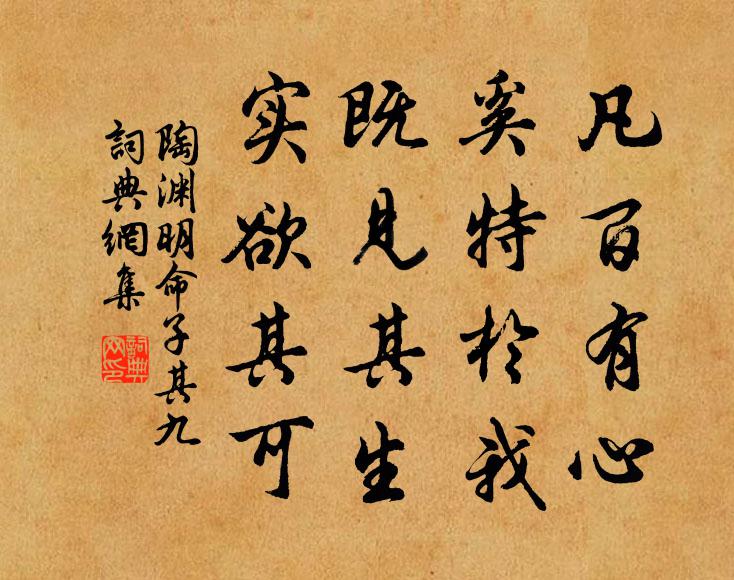 凡百有心
奚特於我
既见其生
实欲其可
陶渊明命子其九
詞典網集
詞典网印